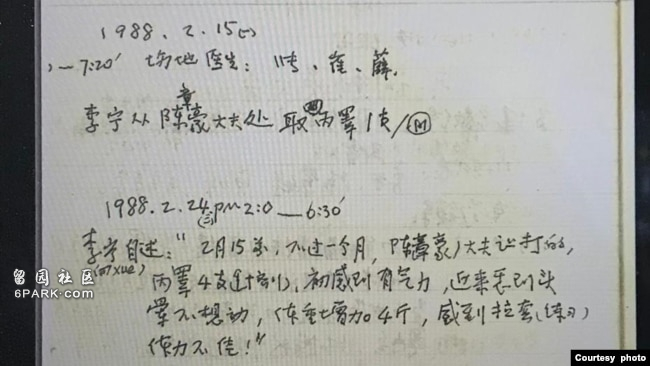 1988. 2. 15 (一)
— 7:20' 场地医生: 陆、崔、薛.
章
李宁从陈豪大夫处取丙睾1支/
1988. 2. 24 (三) pm 2:0 — 6:30'
李宁自述:"2月15号,不过一个月,陈章豪大夫让打的,
丙睾4支(计划), 初感到有气力, 近来感到头
晕不想动, 体重增加4斤, 感到拉套(练习)
体力不佳!"
留园社区
6PARK.COM
Courtesy photo